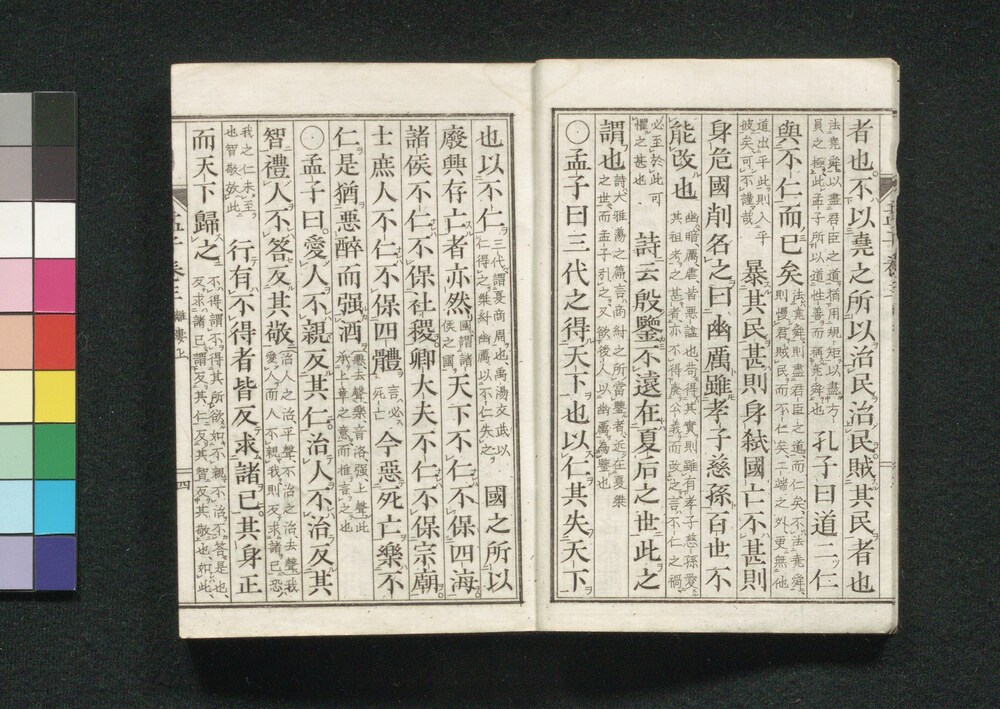 者也不以堯之所以治民治民賊其民者也
法堯舜以盡君臣之道猶用規矩以盡方員之極此孟子所以道性善而稱堯舜也孔子曰道二仁
與不仁而已矣法堯舜則盡君臣之道而仁矣不法堯舜則慢君賊民而不仁矣二端之外更無他
道出乎此則入乎彼矣可不謹哉暴其民甚則身弒國亡不甚則
身危國削名之曰幽厲雖孝子慈孫百世不
能改也幽暗厲虐皆惡謚也苟得其實則雖有孝子慈孫愛其祖考之甚者亦不得廢公義而改之言不仁之禍
必至於此可懼之甚也詩云殷鑒不遠在夏后之世此之
謂也詩大雅蕩之篇言商紂之所當鑒者近在夏桀之世而孟子引之又欲後人以幽厲為鑒也
○孟子曰三代之得天下也以仁其失天下
也以不仁三代謂夏商周也禹湯文武以仁得之桀紂幽厲以不仁失之國之所以
廢興存亡者亦然國謂諸侯之國天下不仁不保四海
諸侯不仁不保社稷卿大夫不仁不保宗廟
士庶人不仁不保四體言必死亡今惡死亡樂不
仁是猶惡醉而强酒惡去聲樂音洛强上聲此承上章之意而推言之也
○孟子曰愛人不親反其仁治人不治反其
智禮人不答反其敬治人之治平聲不治之治去聲我愛人而人不親我則反求諸己恐
我之仁未至也智敬放此行有不得者皆反求諸己其身正
而天下歸之不得謂不得其所欲如不親不治不答是也反求諸己謂反其仁反其智反其敬也如此
孟子卷三離婁上 四